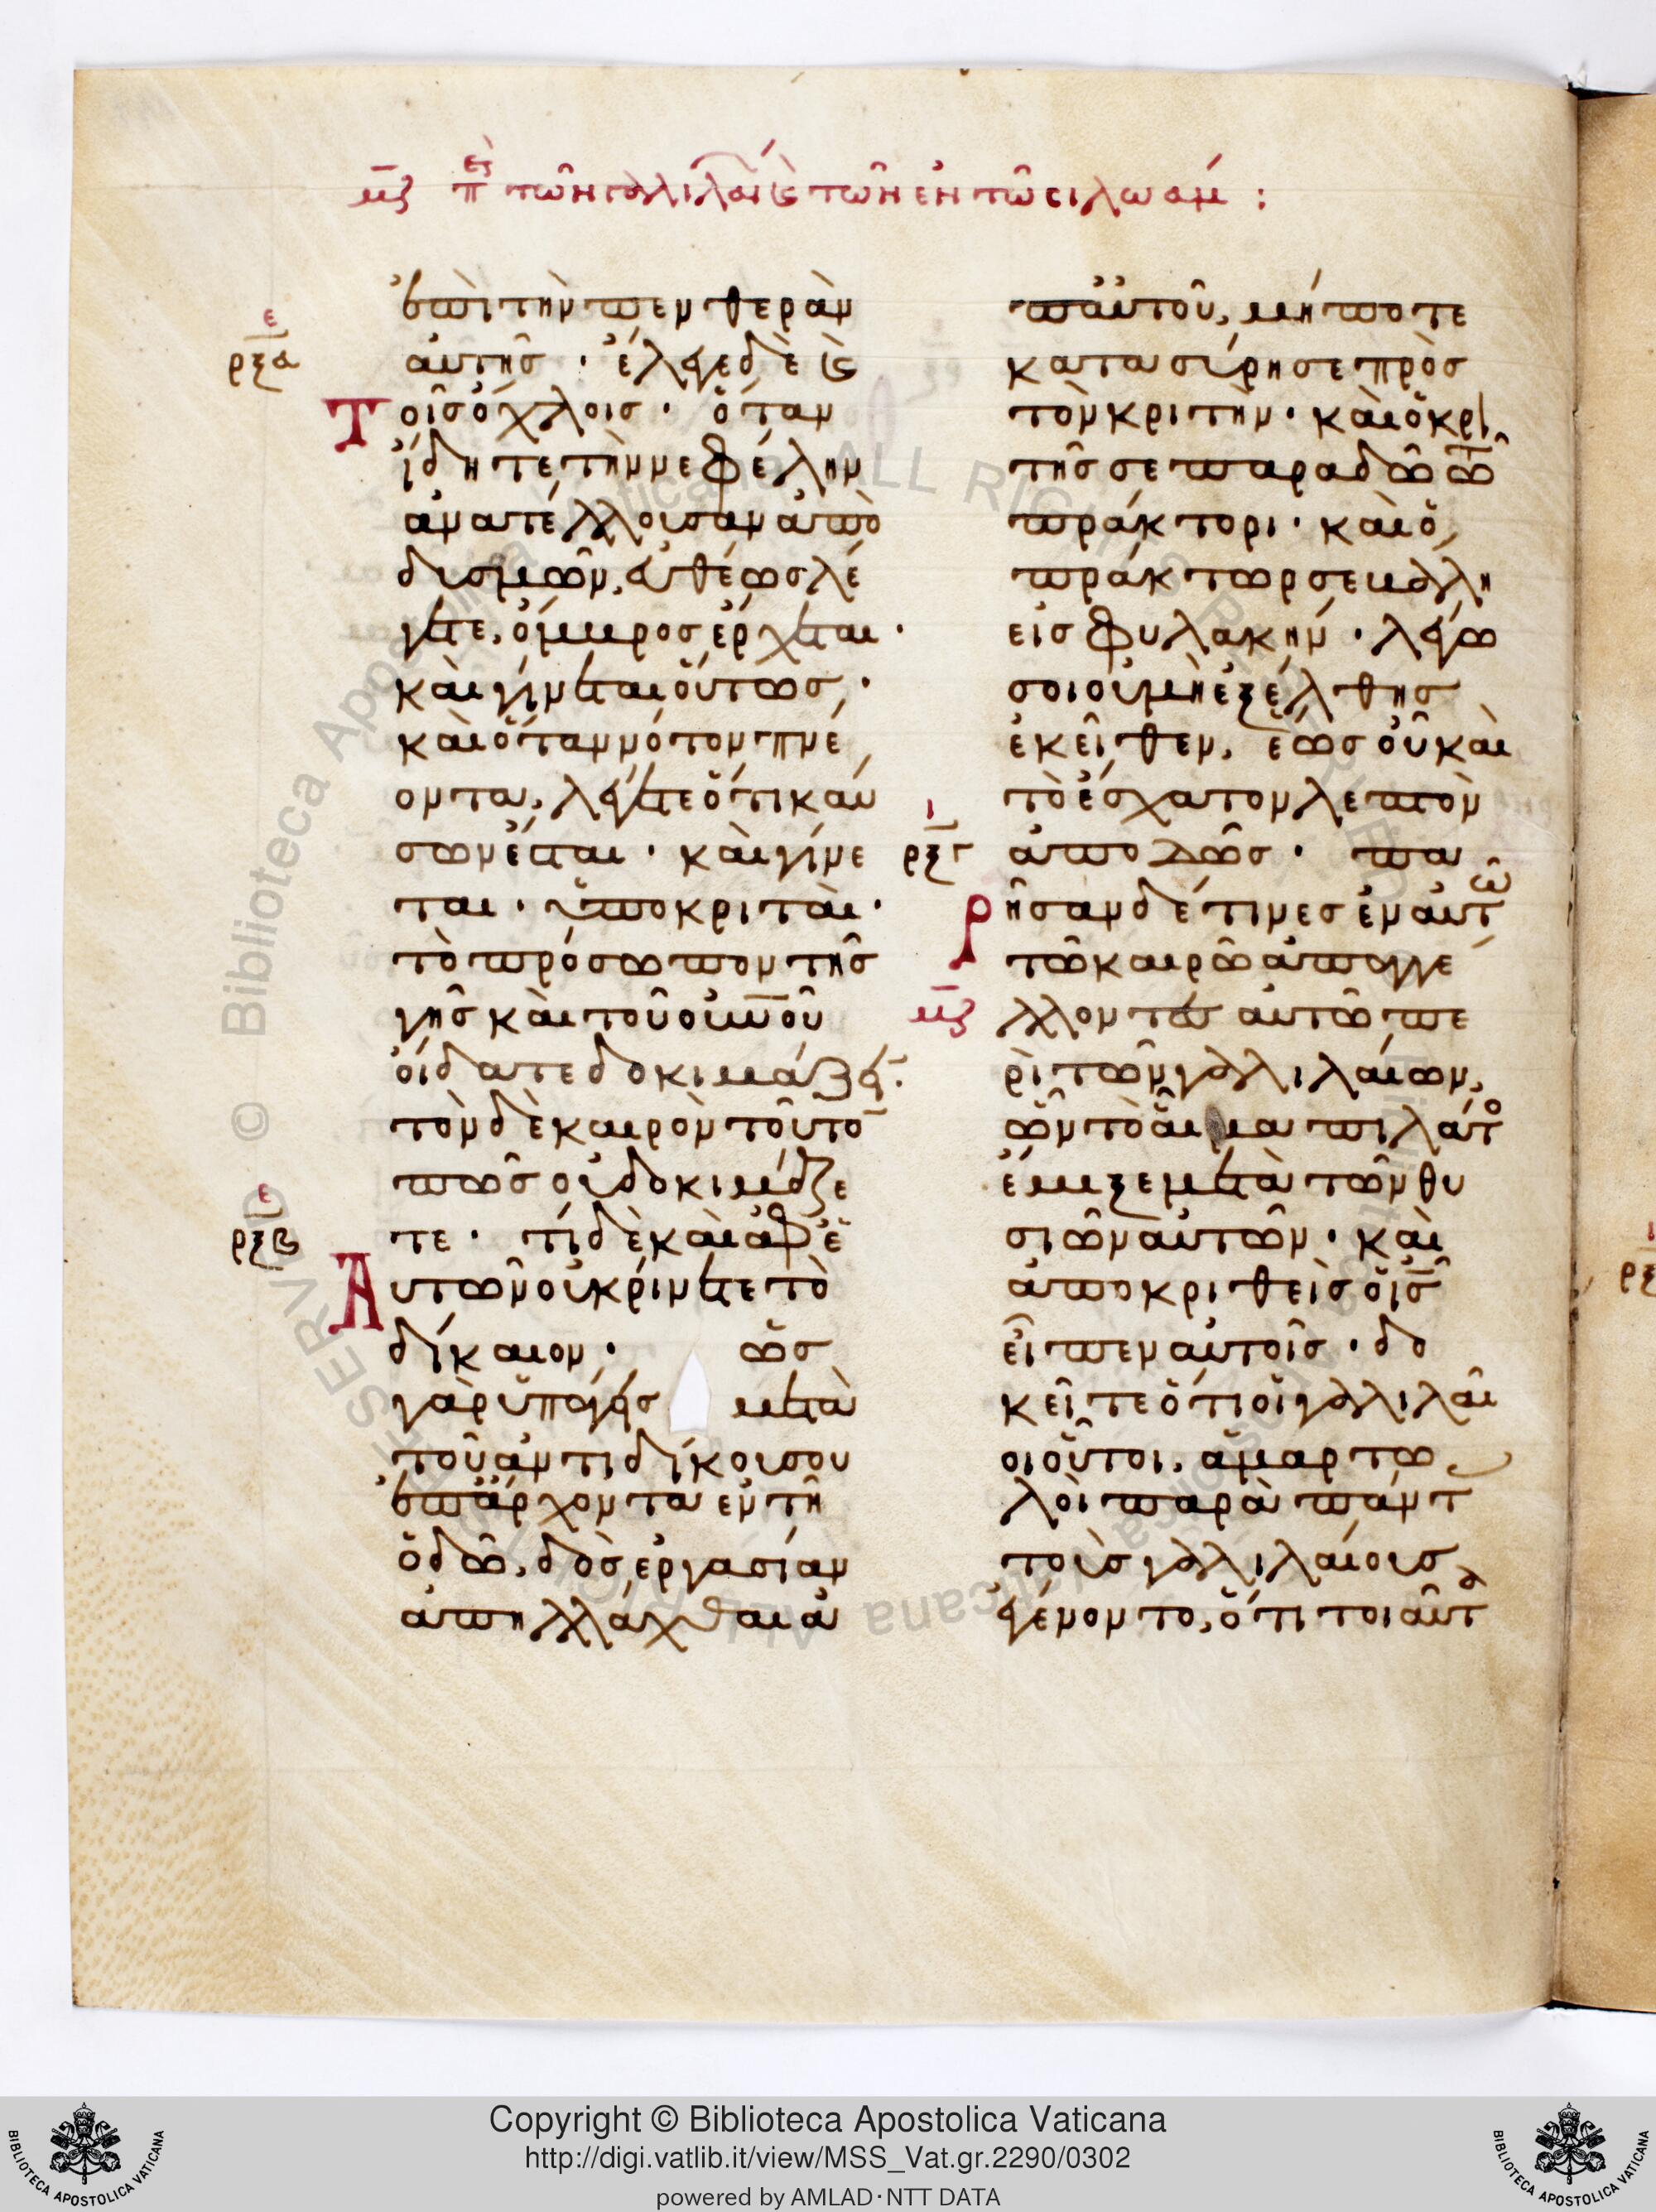 μζ περὶ τῶν γαλιλαί καὶ τῶν ἐν τῶ σιλωάμ :
ἐπι τὴν πενθερὰν
ε
ρξα
αὐτῆσ · ἔλεγε δὲ καὶ
Τοῖσ ὄχλοισ · ὅταν
ἴδητε τὴν νεφέλην
ἀνατέλλουσαν ἀπὸ
δυσμῶν, εὐθέωσ λέ
γετε, ὄμβροσ ἔρχεται ·
καὶ γίνεται οὕτωσ ·
καὶ ὅταν νότον πνέ
οντα, λέγετε ὅτι καύ
σων ἔσται · καὶ γίνε
ται · ὑποκριταὶ ·
τὸ πρόσωπον τῆσ
γῆσ καὶ τοῦ οὐνοῦ
οἴδατε δοκιμάζειν ·
τὸν δὲ καιρὸν τοῦτο
πῶσ οὐ δοκιμάζε
ε
ρξβ
τε · τί δὲ καὶ ἀφ ἑ
Αυτῶν οὐ κρίνετε τὸ
δίκαιον · ὡσ
γὰρ ὑπάγεισ μετὰ
τοῦ ἀντιδίκου σου
ἐπ ἄρχοντα ἐν τῆ
ὁδῶ, δὸσ ἐργασίαν
ἀπηλλάχθαι ἀ
π αὐτοῦ, μήποτε
κατασύρη σε πρὸσ
τὸν κριτήν · καὶ ὁ κρι
τῆσ σε παραδῶ τῶ
πράκτορι · καὶ ὁ
πράκτωρ σε βάλλη
εἰσ φυλακήν · λέγω
σοι οὐ μὴ ἐξέλθησ
ἐκεῖθεν, ἕωσ οὗ καὶ
τὸ ἔσχατον λεπτὸν
ι
ρξγ
ἀποδῶσ · πα
Ρῆσαν δέ τινεσ ἐν αὐτῶ
τῶ καιρῶ ἀπαγγέ
μζ
λλοντεσ αὐτῶ πε
ρὶ τῶν γαλιλαίων,
ὧν τὸ αἷμα πιλάτο
ἔμιξε μετὰ τῶν θυ
σιῶν αὐτῶν · καὶ
ἀποκριθεὶσ ὁ ισ
εἶπεν αὐτοῖσ · δο
κεῖτε ὅτι οἱ γαλιλαῖ
οι οὗτοι, ἁμαρτω
λοὶ παρὰ πάντ
τοὺσ γαλιλαίουσ
ἐγένοντο, ὅτι τοιαῦτα
Copyright © Biblioteca Apostolica Vaticana
http://digi.vatlib.it/view/MSS_Vat.gr.2290/0302
powered by AMLAD·NTT DATA
BIBLIOTECA APOSTOLICA VATICANA
BIBLIOTECA APOSTOLICA VATICANA